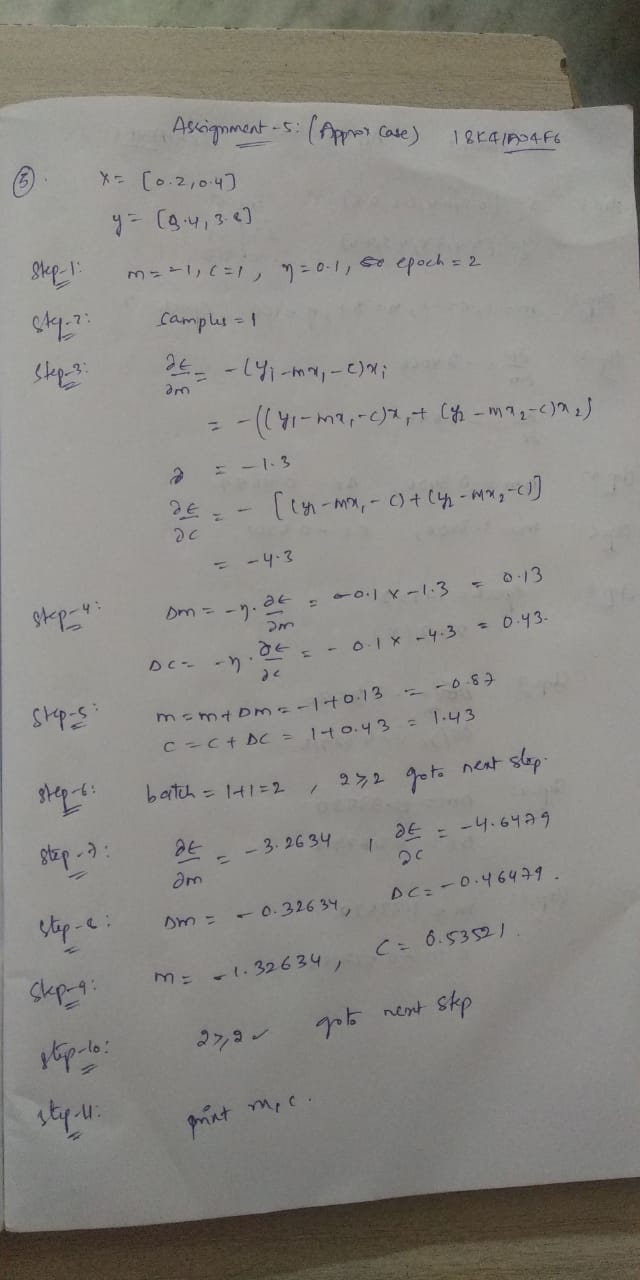 Assignment-5: (Approx Case) 18K41A04F6
③. x = [0.2,0.4]
y = [3.4, 3.8]
Step-1: m = -1, c = 1, η = 0.1, epoch = 2
Step-2: Samples = 1
Step-3: ∂E/∂m = -(yi - mxi - c)xi
= -((y1 - mx1 - c)x1 + (y2 - mx2 - c)x2)
∂ = -1.3
∂E/∂c = - [(y1 - mx1 - c) + (y2 - mx2 - c)]
= -4.3
Step-4: Dm = -η. ∂E/∂m = -0.1 x -1.3 = 0.13
DC = -η. ∂E/∂c = - 0.1 x -4.3 = 0.43.
Step-5: m = m + Dm = -1+0.13 = -0.87
C = C + DC = 1+0.43 = 1.43
Step-6: batch = 1+1=2 , 2≥2 goto next step.
Step-7: ∂E/∂m = -3.2634 , ∂E/∂c = -4.6479
Step-8: Dm = -0.32634, DC = -0.46479.
Step-9: m = -1.32634, C = 0.53521.
Step-10: 2≥2 ✓ goto next step
Step-11: print m, c.